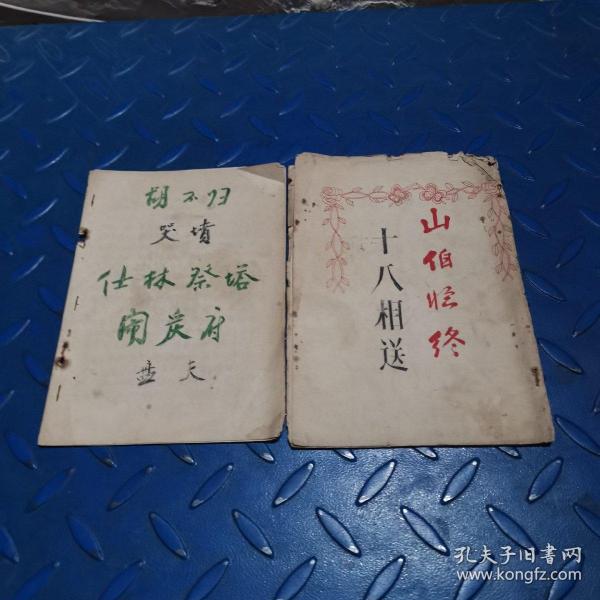 胡不归
哭墳
仕林祭塔
闹严府
盘夫
山伯临终
十八相送
孔夫子旧书网
www.kongfz.com